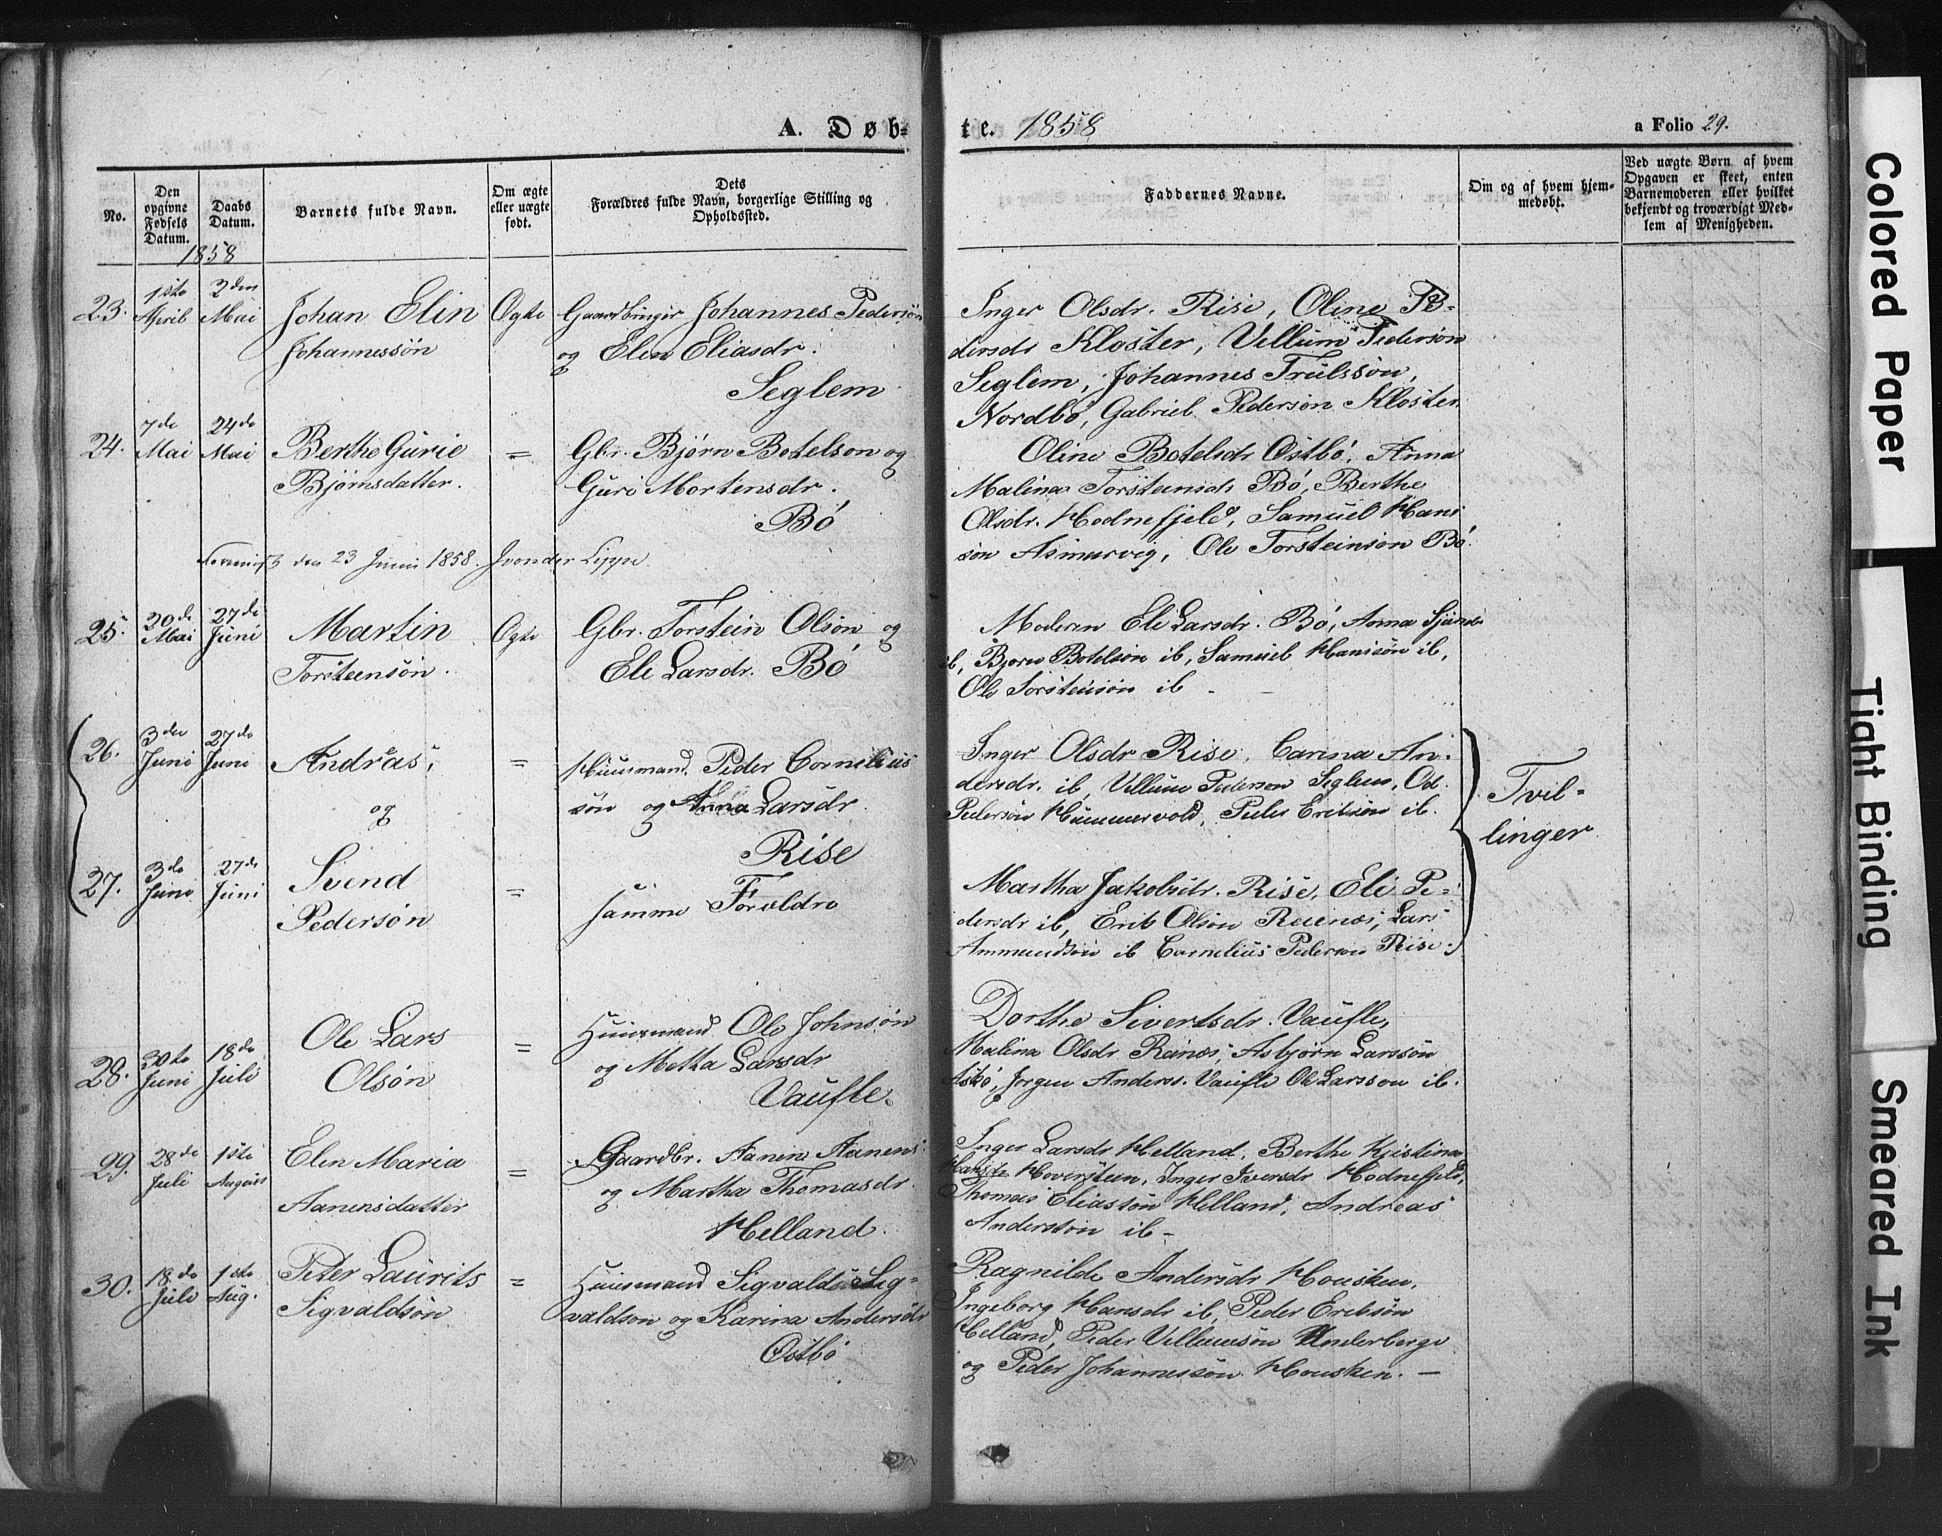 A. Døb-
te. 1858
a Folio 29.
No.
Den opgivne Fødsels Datum.
Daabs Datum.
Barnets fulde Navn.
Om ægte eller uægte født.
Dets Forældres fulde Navn, borgerlige Stilling og Opholdsted.
Faddernes Navne.
Om og af hvem hjem-medøbt.
Ved uægte Børn af hvem Opgaven er skeet, enten Barnemoderen eller hvilket bekjendt og troværdigt Med-lem af Menigheden.
1858
23.
1ste April
2den Mai
Johan Elin
Johannessön
Ogte
Gaardbruger Johannes Pedersön
og Elen Eliasdr.
Seglem
Inger Olsdr. Rise, Oline Pe-
dersdr Kloster, Villum Pedersön
Seglem, Johannes Trulssön,
Nordbö, Gabriel Pedersön Kloster
24.
7de Mai
24de Mai
Berthe Gurie
Björnsdatter.
=
Gbr. Björn Botelson og
Guri Mortensdr.
Bö
Oline Botelsdr Ostbö, Anna
Malina Torsteinsdr Bö, Berthe
Olsdr. Hodnefjeld, Samuel Hani
sön Asmarvig, Ole Torsteinsön Bö
den 23 Juni 1858. Jvonder Lippe
25.
20de Mai
27de Juni
Martin
Torsteensön.
Ogte
Gbr. Torstein Olsön og
Ele Larsdr. Bö
Moderen Ele Larsdr. Bö, Anna
ib, Bjørn Botelsön ib, Samuel Hanisön ib,
Ole Torsteinsön ib -
26.
3die Juni
27de Juni
Andras,
og
=
Huusmand Peder Cornelius
sön og Anna Larsdr.
Rise
Inger Olsdr Rise, Carina An-
dersdr. ib, Villum Pederson Seglem, Od.
Pedersön Hummervold, Peder Eriksön ib.
Tvil-
linger
27.
3de Juni
27de Juni
Svend
Pedersön
=
samme Foræeldre
Martha Jakobsdr. Rise, Eli Pe-
dersdr ib, Erik Olsön Reienæs, Lars
Ammundsön ib Cornelius Pederson Rise.
28.
30te Juni
18de Juli
Ole Lars
Olsön
=
Huusmand Ole Johnsön
og Metha Larsdr
Vaufle.
Dorthe Sivertsdr. Vaufle,
Malina Olsdr Renæs, Asbjörn Larssön
Askö, Jorgen Anders. Vaufle Ole Larsson ib.
29.
28de Juli
1ste August
Elen Maria
Aanensdatter
=
Gaardbr. Aanen Aanens.
og Martha Thomasdr.
Helland.
Inger Larsdr Helland, Berthe Kjistina
Hansdr Hoversteen, Inger Iversdr Hodnefjeld,
Thomas Eliassön Helland, Andreas
Andersson ib -
30.
18de Juli
1ste Aug.
Peter Laurits
Sigvaldsön
=
Huusmand Sigvald Sig-
valdson og Karina Andersdr
Ostbö
Ragnilde Andersdr Housken,
Ingeborg Hansdr ib, Peder Eriksön
Helland, Peder Villumsön Underberge
og Peder Johannessön Housken. -
Colored Paper
Tight Binding
Smeared Ink